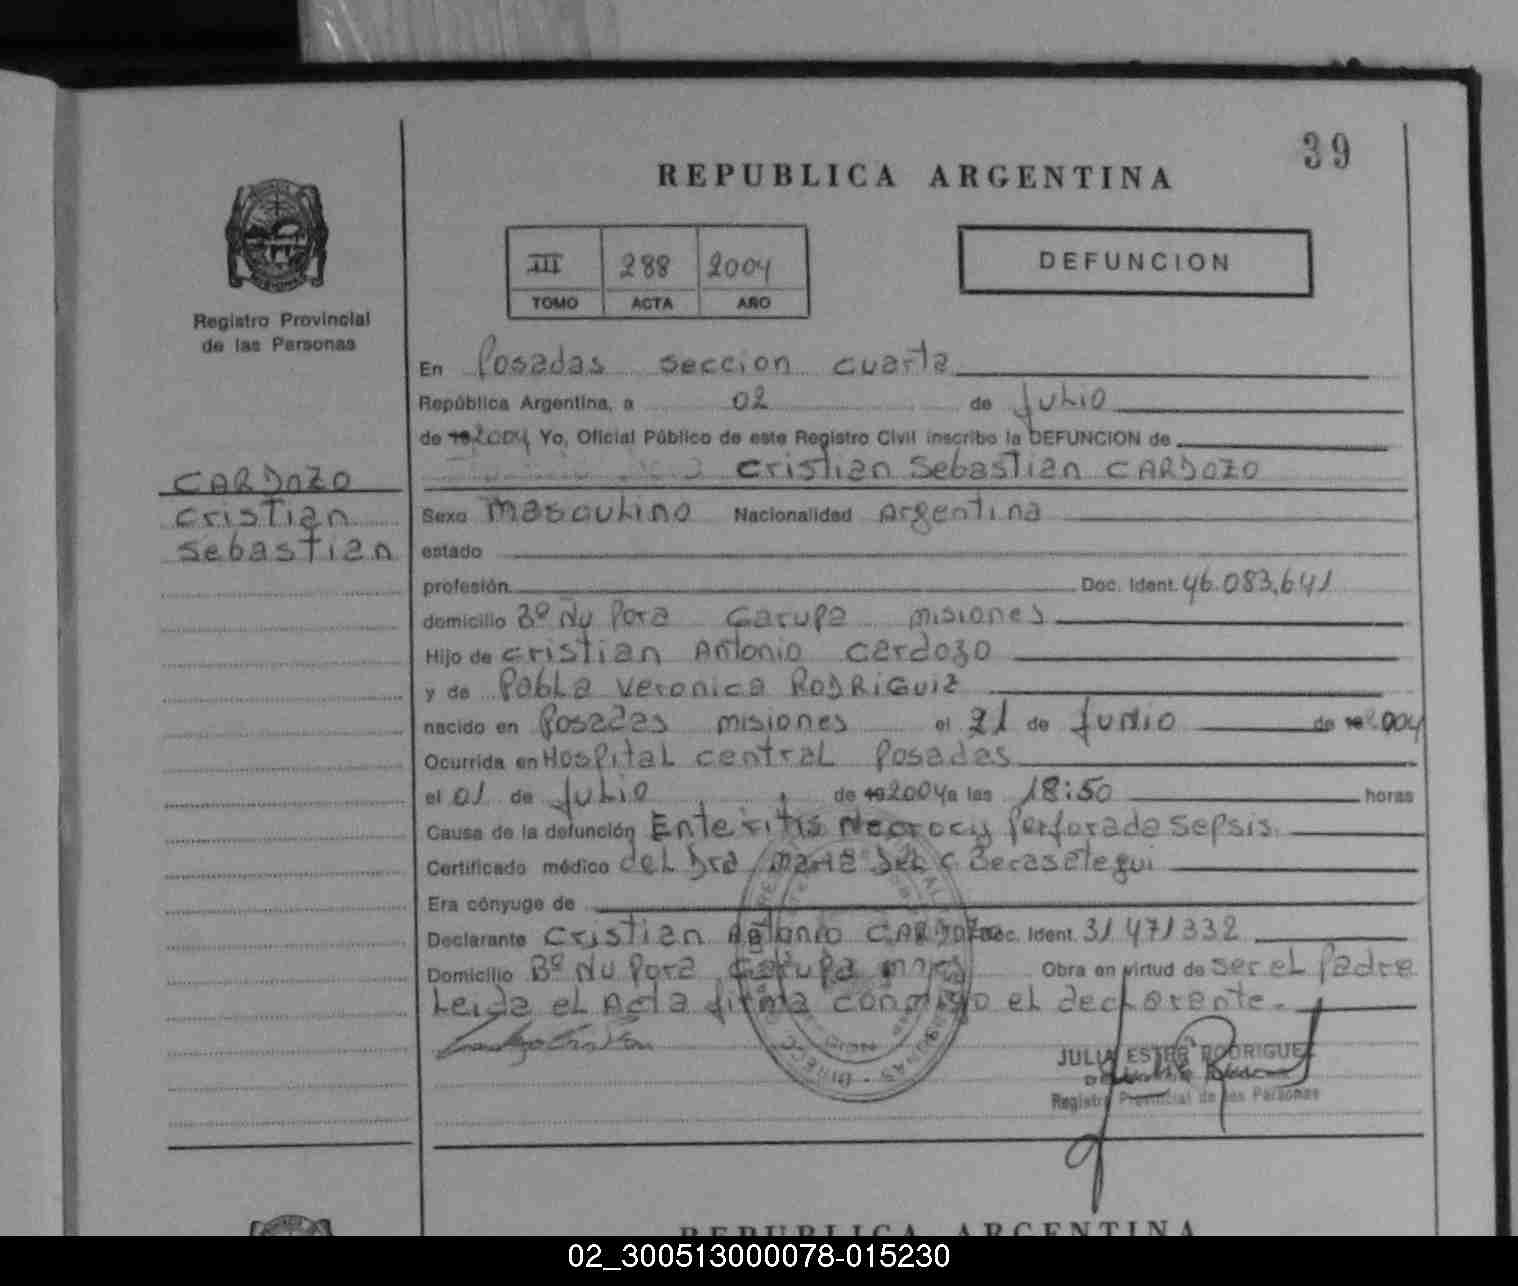 39
REPUBLICA ARGENTINA
III 288 2004
TOMO ACTA AÑO
DEFUNCION
Registro Provincial
de las Personas
En Posadas seccion cuarta
República Argentina, a 02 de Julio
de 19 2004 Yo, Oficial Público de este Registro Civil inscribo la DEFUNCION de
Cristian Sebastian CARDOZO
CARDOZO
Cristian
Sebastian
Sexo Masculino Nacionalidad Argentina
estado
profesión Doc. Ident. 46.083.641
domicilio Bº Ñu Pora Garupa misiones
Hijo de Cristian Antonio Cardozo
y de Pabla Veronica RODRiGuiz
nacido en Posadas misiones el 21 de Junio de 19 2004
Ocurrida en Hospital central Posadas
el 01 de Julio de 19 2004 a las 18:50 horas
Causa de la defunción Enteritis Perforada Sepsis.
Certificado médico del Dra Maria Del C Berasategui
Era cónyuge de
Declarante Cristian Antonio CARDOZO Doc. Ident. 31 471 332
Domicilio Bº Ñu Pora Garupa mnes Obra en virtud de ser el Padre
Leida el Acta firma conmigo el declarante.
JULIA ESTER RODRIGUEZ
Registro Provincial de las Personas
REPUBLICA ARGENTINA
02_300513000078-015230